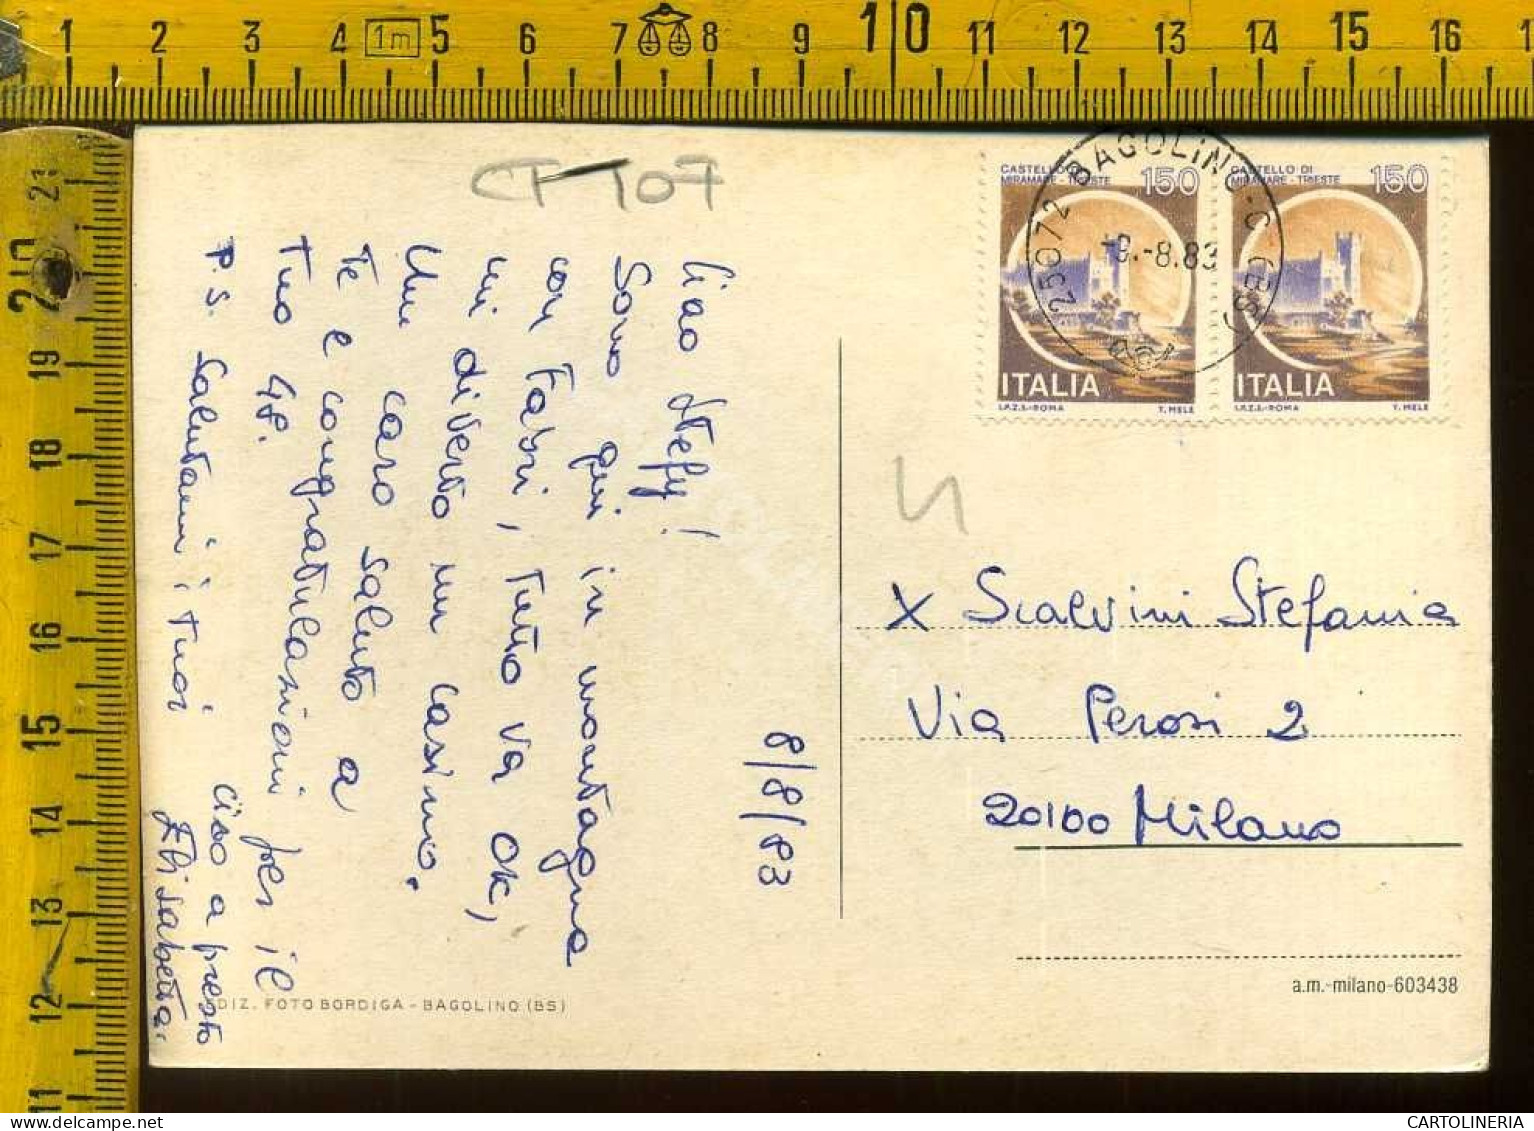 1 2 3 4 1m 5 6 7 8 9 10 11 12 13 14 15 16
21
20
19
18
17
16
15
14
13
12
11
CF 107
CASTELLO DI
MIRAMARE - TRIESTE
150
ITALIA
I.P.Z.S.-ROMA T. MELE
CASTELLO DI
MIRAMARE - TRIESTE
150
ITALIA
I.P.Z.S.-ROMA T. MELE
25072 BAGOLINO (BS)
-9.-8.83
8/8/83
Ciao Stefy!
Sono qui in montagna
con Fabri, tutto va ok,
mi diverto un casino.
Un caro saluto a
Te e congratulazioni per il
Tuo 48.
P.S. Salutami i tuoi
Ciao a presto
Elisabetta.
X Scalvini Stefania
Via Perosi 2
20100 Milano
EDIZ. FOTO BORDIGA - BAGOLINO (BS)
a.m.-milano-603438
delcampe.net
CARTOLINERIA